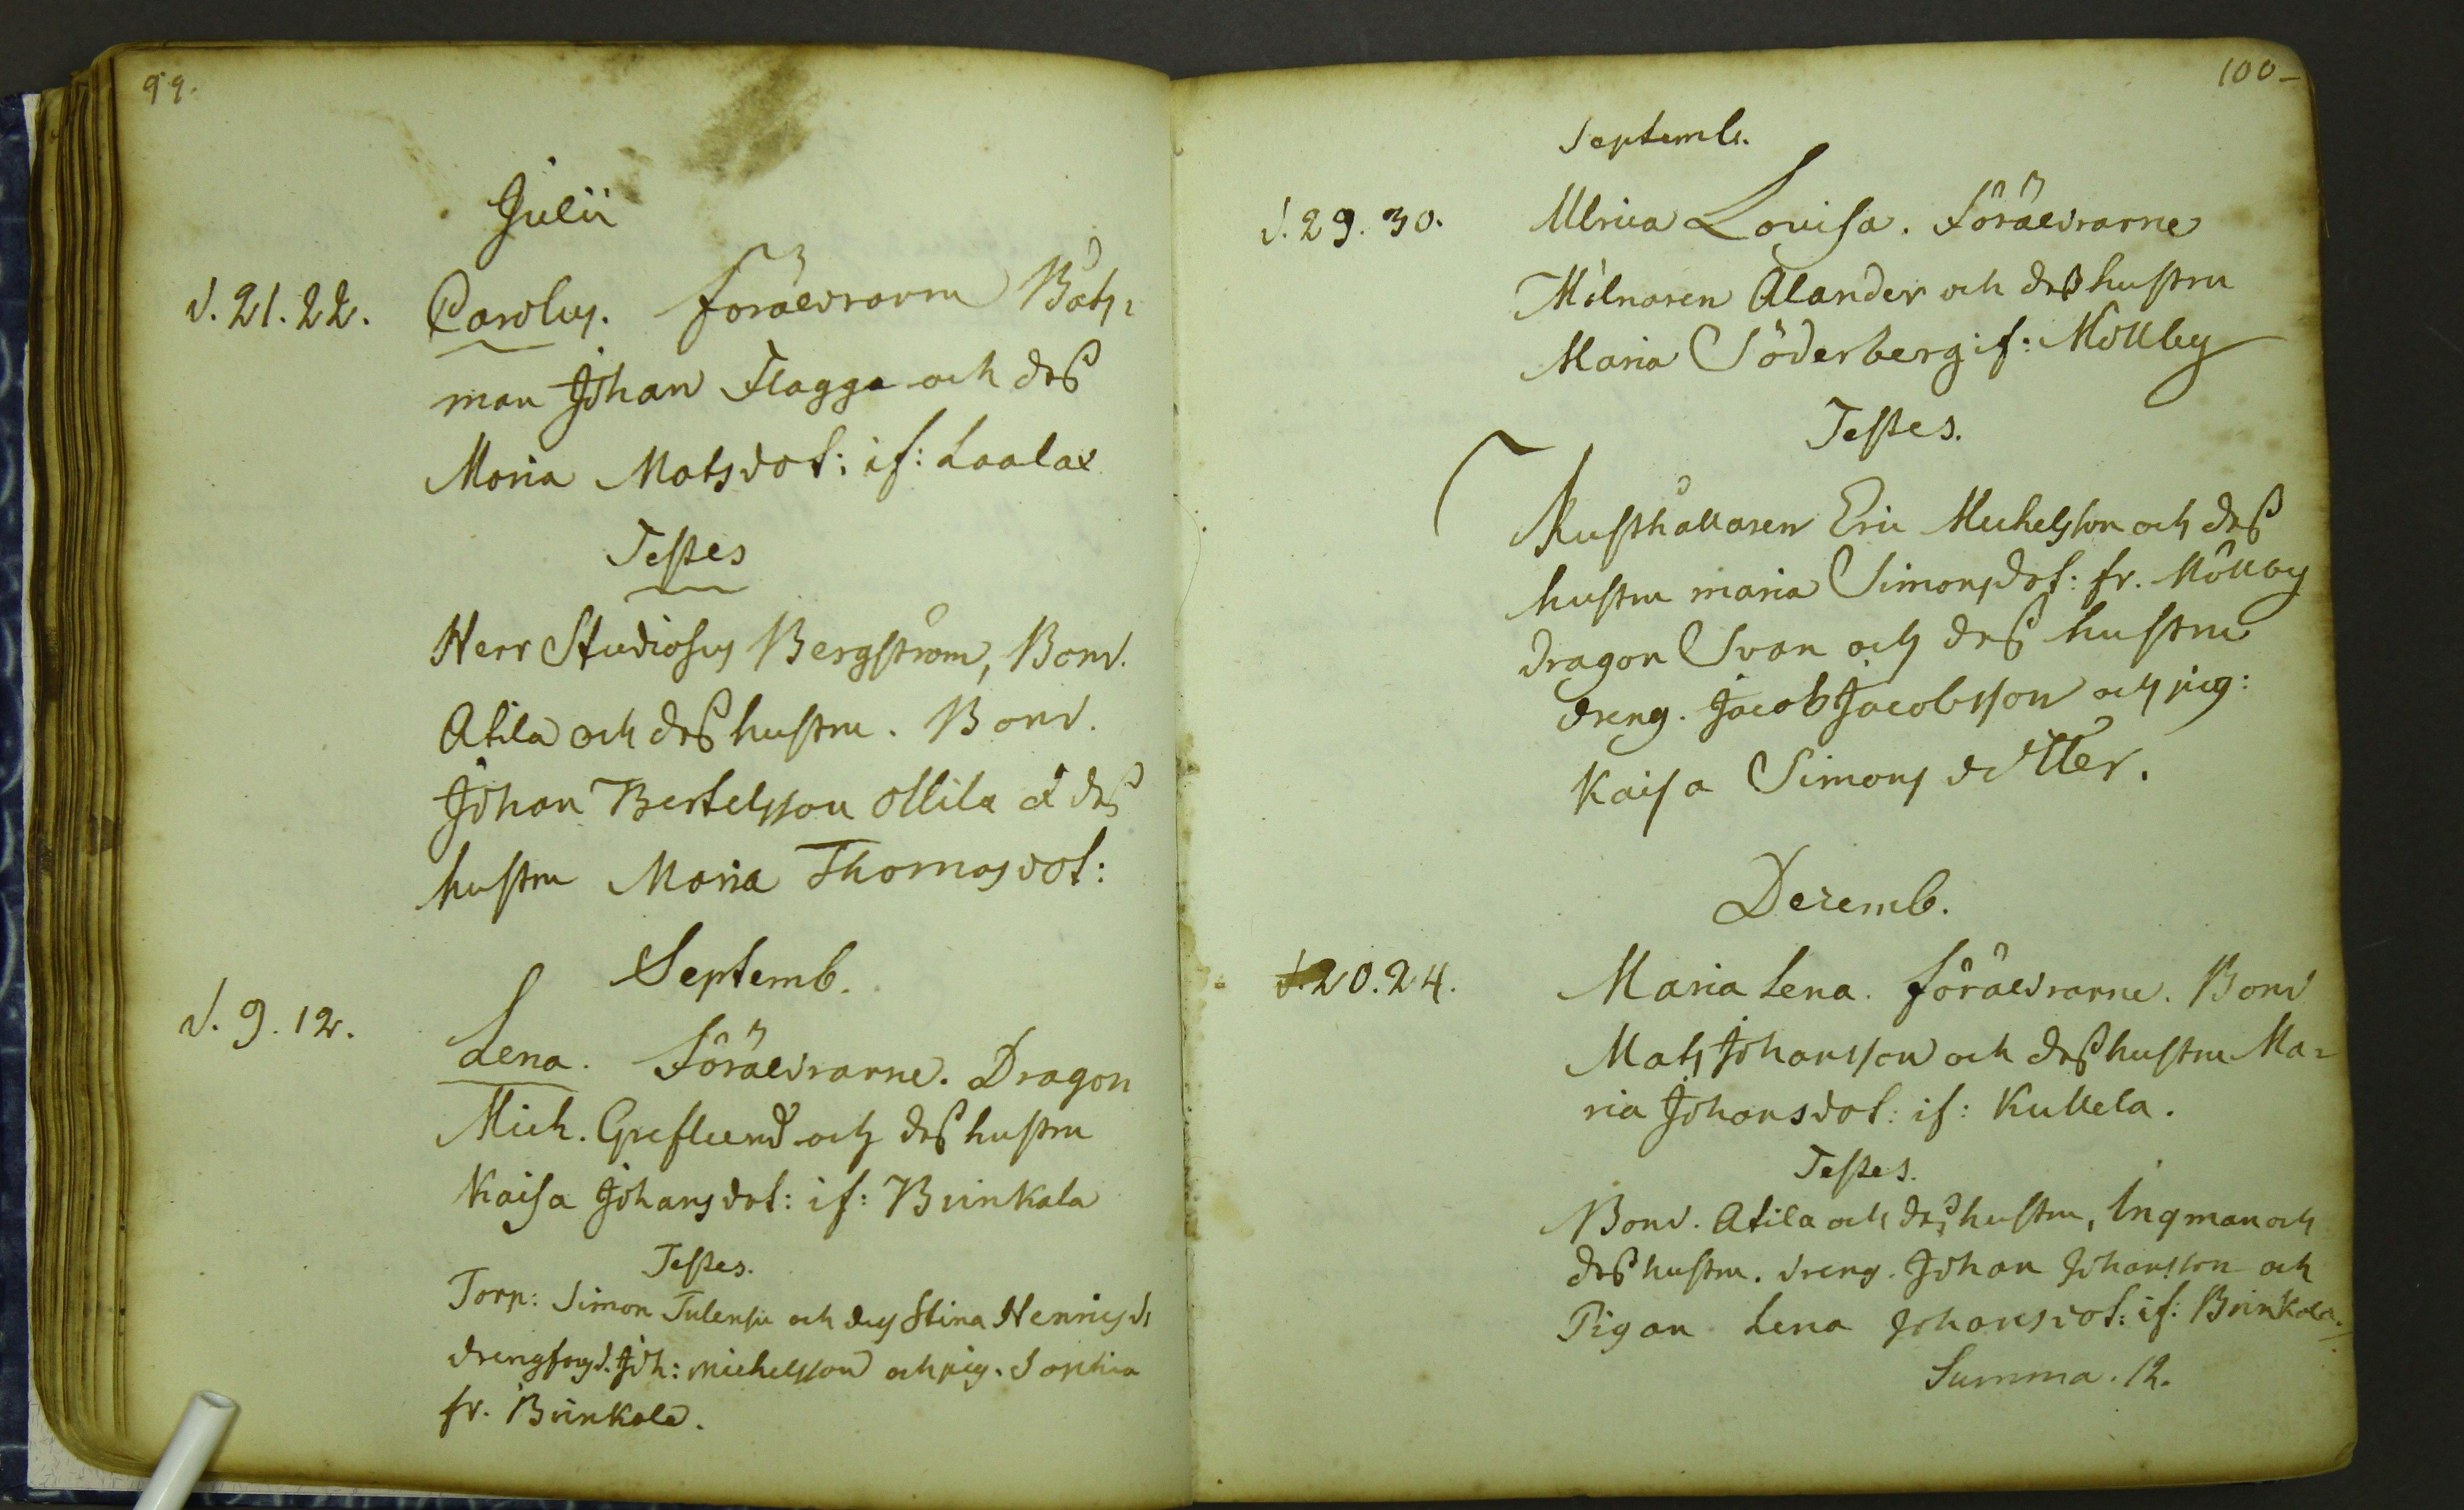 99.
Julii
d. 21. 22. Carolus. Föräldrarna Båts-
man Johan Flagga och dess
Maria Matsdot: if: Laalax
Testes
Herr Studiosus Bergström, Bond.
Atila och dess hustru. Bond.
Johan Bertelsson Ollila & dess
hustru Maria Thomasdot:
Septemb.
d. 9. 12. Lena. Föräldrarne. Dragon
Mich. Greflund och dess hustru
Kaisa Johansdot: if: Brinkala
Testes.
Torp: Simon och des Stina Henrics d:
drengfogd. Joh: Michelsson och pig. Sophia
fr. Brinkala.
100-
Septemb.
d. 29. 30. Ulrica Lovisa. Föräldrarne
Mölnaren Alander och dess hustru
Maria Söderberg if: Möllby
Testes.
Rusthållaren Eric Michelsson och dess
hustru maria Simonsdot: fr. Möllby
dragon Svan och dess hustru
dreng. Jacob Jacobsson och pig:
Kaisa Simons dotter.
Decemb.
d. 20. 24. Maria Lena. föräldrarne. Bond
Mats Johansson och dess hustru Ma-
ria Johansdot: if: Kullela.
Testes.
Bond. Atila och dess hustru, Ingman och
dess hustru. dreng. Johan Johansson och
Pigan Lena Johansdot: if: Brinkala.
Summa. 12.